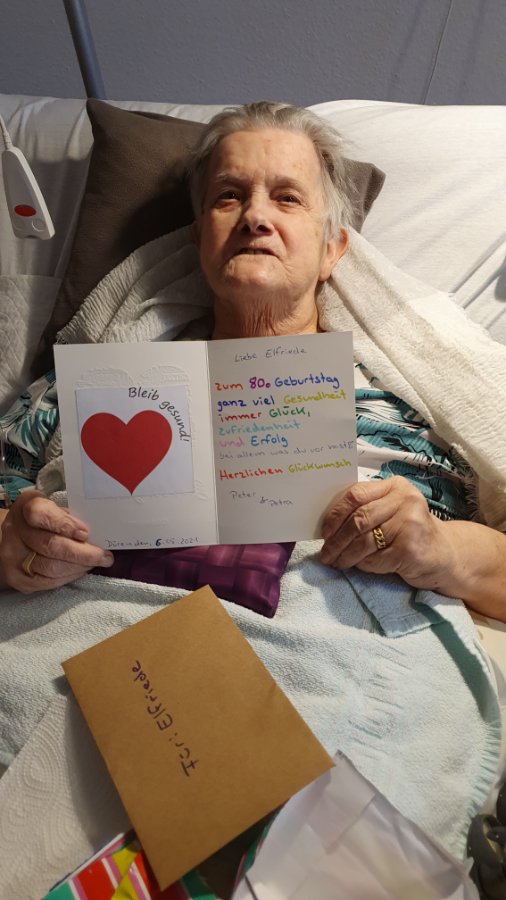 Bleib gesund!
Düren den, 6.05.2021
Liebe Elfriede
zum 80. Geburtstag
ganz viel Gesundheit
immer Glück,
zufriedenheit
und Erfolg
bei allem was du vor hast!
Herzlichen Glückwunsch
Peter &
Petra
Für: Elfriede